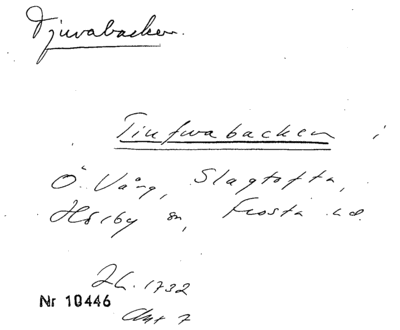 Tjuvabacken.
Tiufwabacken i
Ö. Vång, Slagtofta,
Hörby sn, Frosta hd.
Lh. 1732
Nr 10446
Akt 7